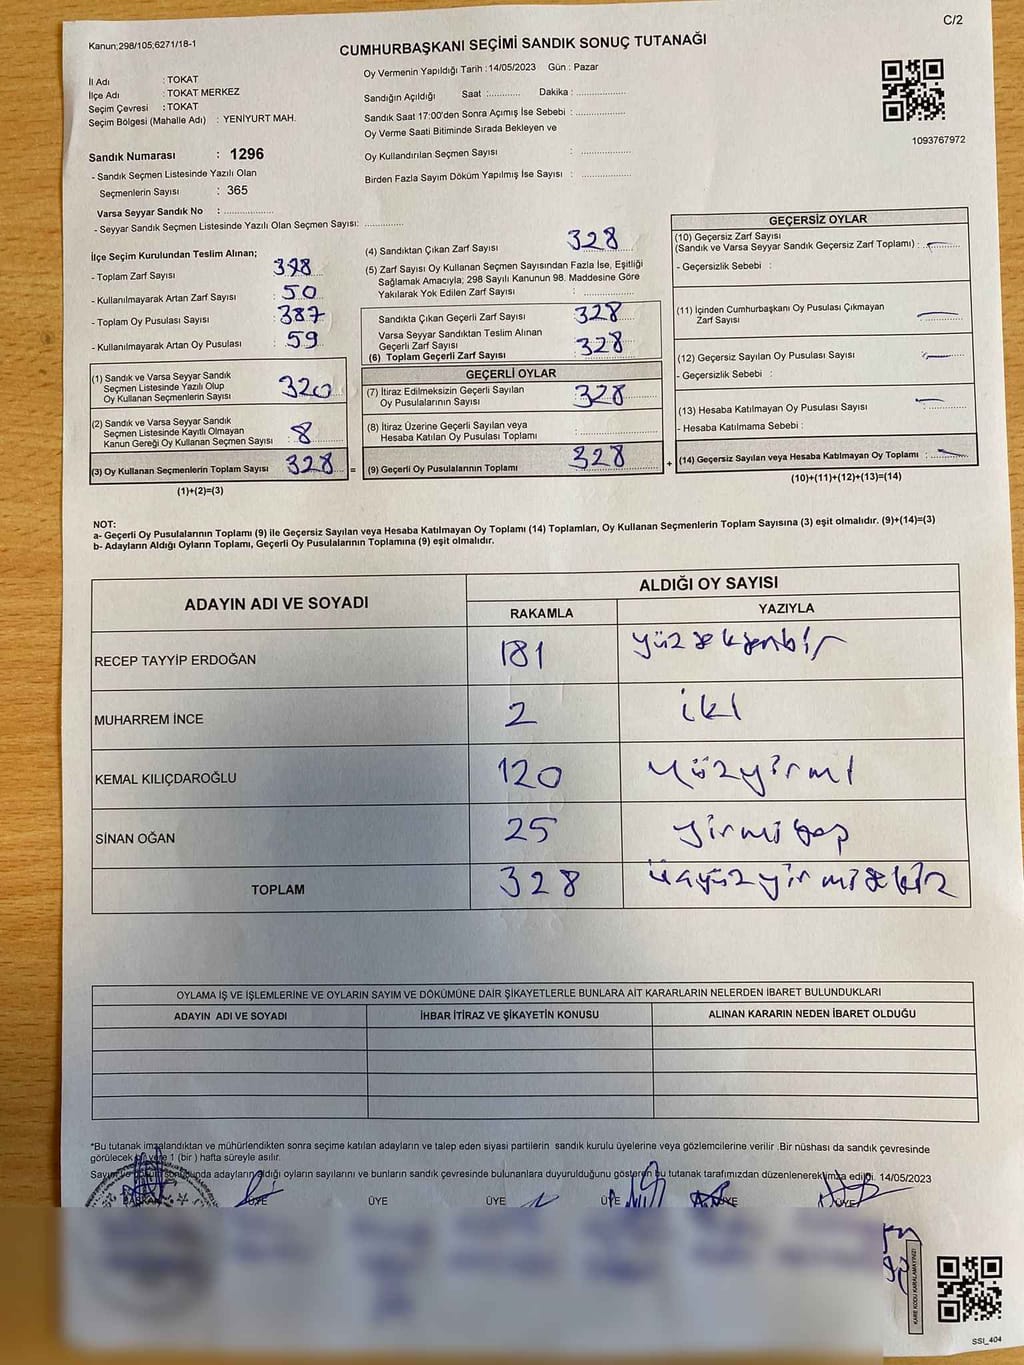 C/2
Kanun;298/105;6271/18-1
CUMHURBAŞKANI SEÇİMİ SANDIK SONUÇ TUTANAĞI
İl Adı : TOKAT
İlçe Adı : TOKAT MERKEZ
Seçim Çevresi : TOKAT
Seçim Bölgesi (Mahalle Adı) : YENİYURT MAH.
Sandık Numarası : 1296
- Sandık Seçmen Listesinde Yazılı Olan
Seçmenlerin Sayısı : 365
Varsa Seyyar Sandık No : ................
- Seyyar Sandık Seçmen Listesinde Yazılı Olan Seçmen Sayısı: ............
Oy Vermenin Yapıldığı Tarih : 14/05/2023 Gün : Pazar
Sandığın Açıldığı Saat :........... Dakika : ................
Sandık Saat 17:00'den Sonra Açımış İse Sebebi : ................
Oy Verme Saati Bitiminde Sırada Bekleyen ve
Oy Kullandırılan Seçmen Sayısı : ................
Birden Fazla Sayım Döküm Yapılmış İse Sayısı : ................
1093767972
İlçe Seçim Kurulundan Teslim Alınan;
- Toplam Zarf Sayısı :
- Kullanılmayarak Artan Zarf Sayısı : 50
- Toplam Oy Pusulası Sayısı : 387
- Kullanılmayarak Artan Oy Pusulası : 59
(1) Sandık ve Varsa Seyyar Sandık
Seçmen Listesinde Yazılı Olup
Oy Kullanan Seçmenlerin Sayısı : 320
(2) Sandık ve Varsa Seyyar Sandık
Seçmen Listesinde Kayıtlı Olmayan
Kanun Gereği Oy Kullanan Seçmen Sayısı : 8
(3) Oy Kullanan Seçmenlerin Toplam Sayısı : 328 =
(1)+(2)=(3)
(4) Sandıktan Çıkan Zarf Sayısı : 328
(5) Zarf Sayısı Oy Kullanan Seçmen Sayısından Fazla İse, Eşitliği
Sağlamak Amacıyla; 298 Sayılı Kanunun 98. Maddesine Göre
Yakılarak Yok Edilen Zarf Sayısı : ................
Sandıkta Çıkan Geçerli Zarf Sayısı : 328
Varsa Seyyar Sandıktan Teslim Alınan
Geçerli Zarf Sayısı :
(6) Toplam Geçerli Zarf Sayısı : 328
GEÇERLİ OYLAR
(7) İtiraz Edilmeksizin Geçerli Sayılan
Oy Pusulalarının Sayısı : 328
(8) İtiraz Üzerine Geçerli Sayılan veya
Hesaba Katılan Oy Pusulası Toplamı : ................
(9) Geçerli Oy Pusulalarının Toplamı : 328 +
GEÇERSİZ OYLAR
(10) Geçersiz Zarf Sayısı
(Sandık ve Varsa Seyyar Sandık Geçersiz Zarf Toplamı) : —
- Geçersizlik Sebebi :
(11) İçinden Cumhurbaşkanı Oy Pusulası Çıkmayan
Zarf Sayısı : —
(12) Geçersiz Sayılan Oy Pusulası Sayısı : —
- Geçersizlik Sebebi :
(13) Hesaba Katılmayan Oy Pusulası Sayısı : —
- Hesaba Katılmama Sebebi :
(14) Geçersiz Sayılan veya Hesaba Katılmayan Oy Toplamı : —
(10)+(11)+(12)+(13)=(14)
NOT:
a- Geçerli Oy Pusulalarının Toplamı (9) ile Geçersiz Sayılan veya Hesaba Katılmayan Oy Toplamı (14) Toplamları, Oy Kullanan Seçmenlerin Toplam Sayısına (3) eşit olmalıdır. (9)+(14)=(3)
b- Adayların Aldığı Oyların Toplamı, Geçerli Oy Pusulalarının Toplamına (9) eşit olmalıdır.
ADAYIN ADI VE SOYADI ALDIĞI OY SAYISI
RAKAMLA YAZIYLA
RECEP TAYYİP ERDOĞAN 181 yüzseksenbir
MUHARREM İNCE 2 iki
KEMAL KILIÇDAROĞLU 120 yüzyirmi
SİNAN OĞAN 25 yirmibeş
TOPLAM 328 üçyüzyirmisekiz
OYLAMA İŞ VE İŞLEMLERİNE VE OYLARIN SAYIM VE DÖKÜMÜNE DAİR ŞİKAYETLERLE BUNLARA AİT KARARLARIN NELERDEN İBARET BULUNDUKLARI
ADAYIN ADI VE SOYADI İHBAR İTİRAZ VE ŞİKAYETİN KONUSU ALINAN KARARIN NEDEN İBARET OLDUĞU
*Bu tutanak imzalandıktan ve mühürlendikten sonra seçime katılan adayların ve talep eden siyasi partilerin sandık kurulu üyelerine veya gözlemcilerine verilir .Bir nüshası da sandık çevresinde
görülecek bir yere 1 (bir ) hafta süreyle asılır.
Sayım ve döküm sonucunda adayların aldığı oyların sayılarını ve bunların sandık çevresinde bulunanlara duyurulduğunu gösteren bu tutanak tarafımızdan düzenlenerek imza edildi. 14/05/2023
BAŞKAN ÜYE ÜYE ÜYE ÜYE ÜYE ÜYE
KARE KODU KARALAMAYINIZ!
SSI_404